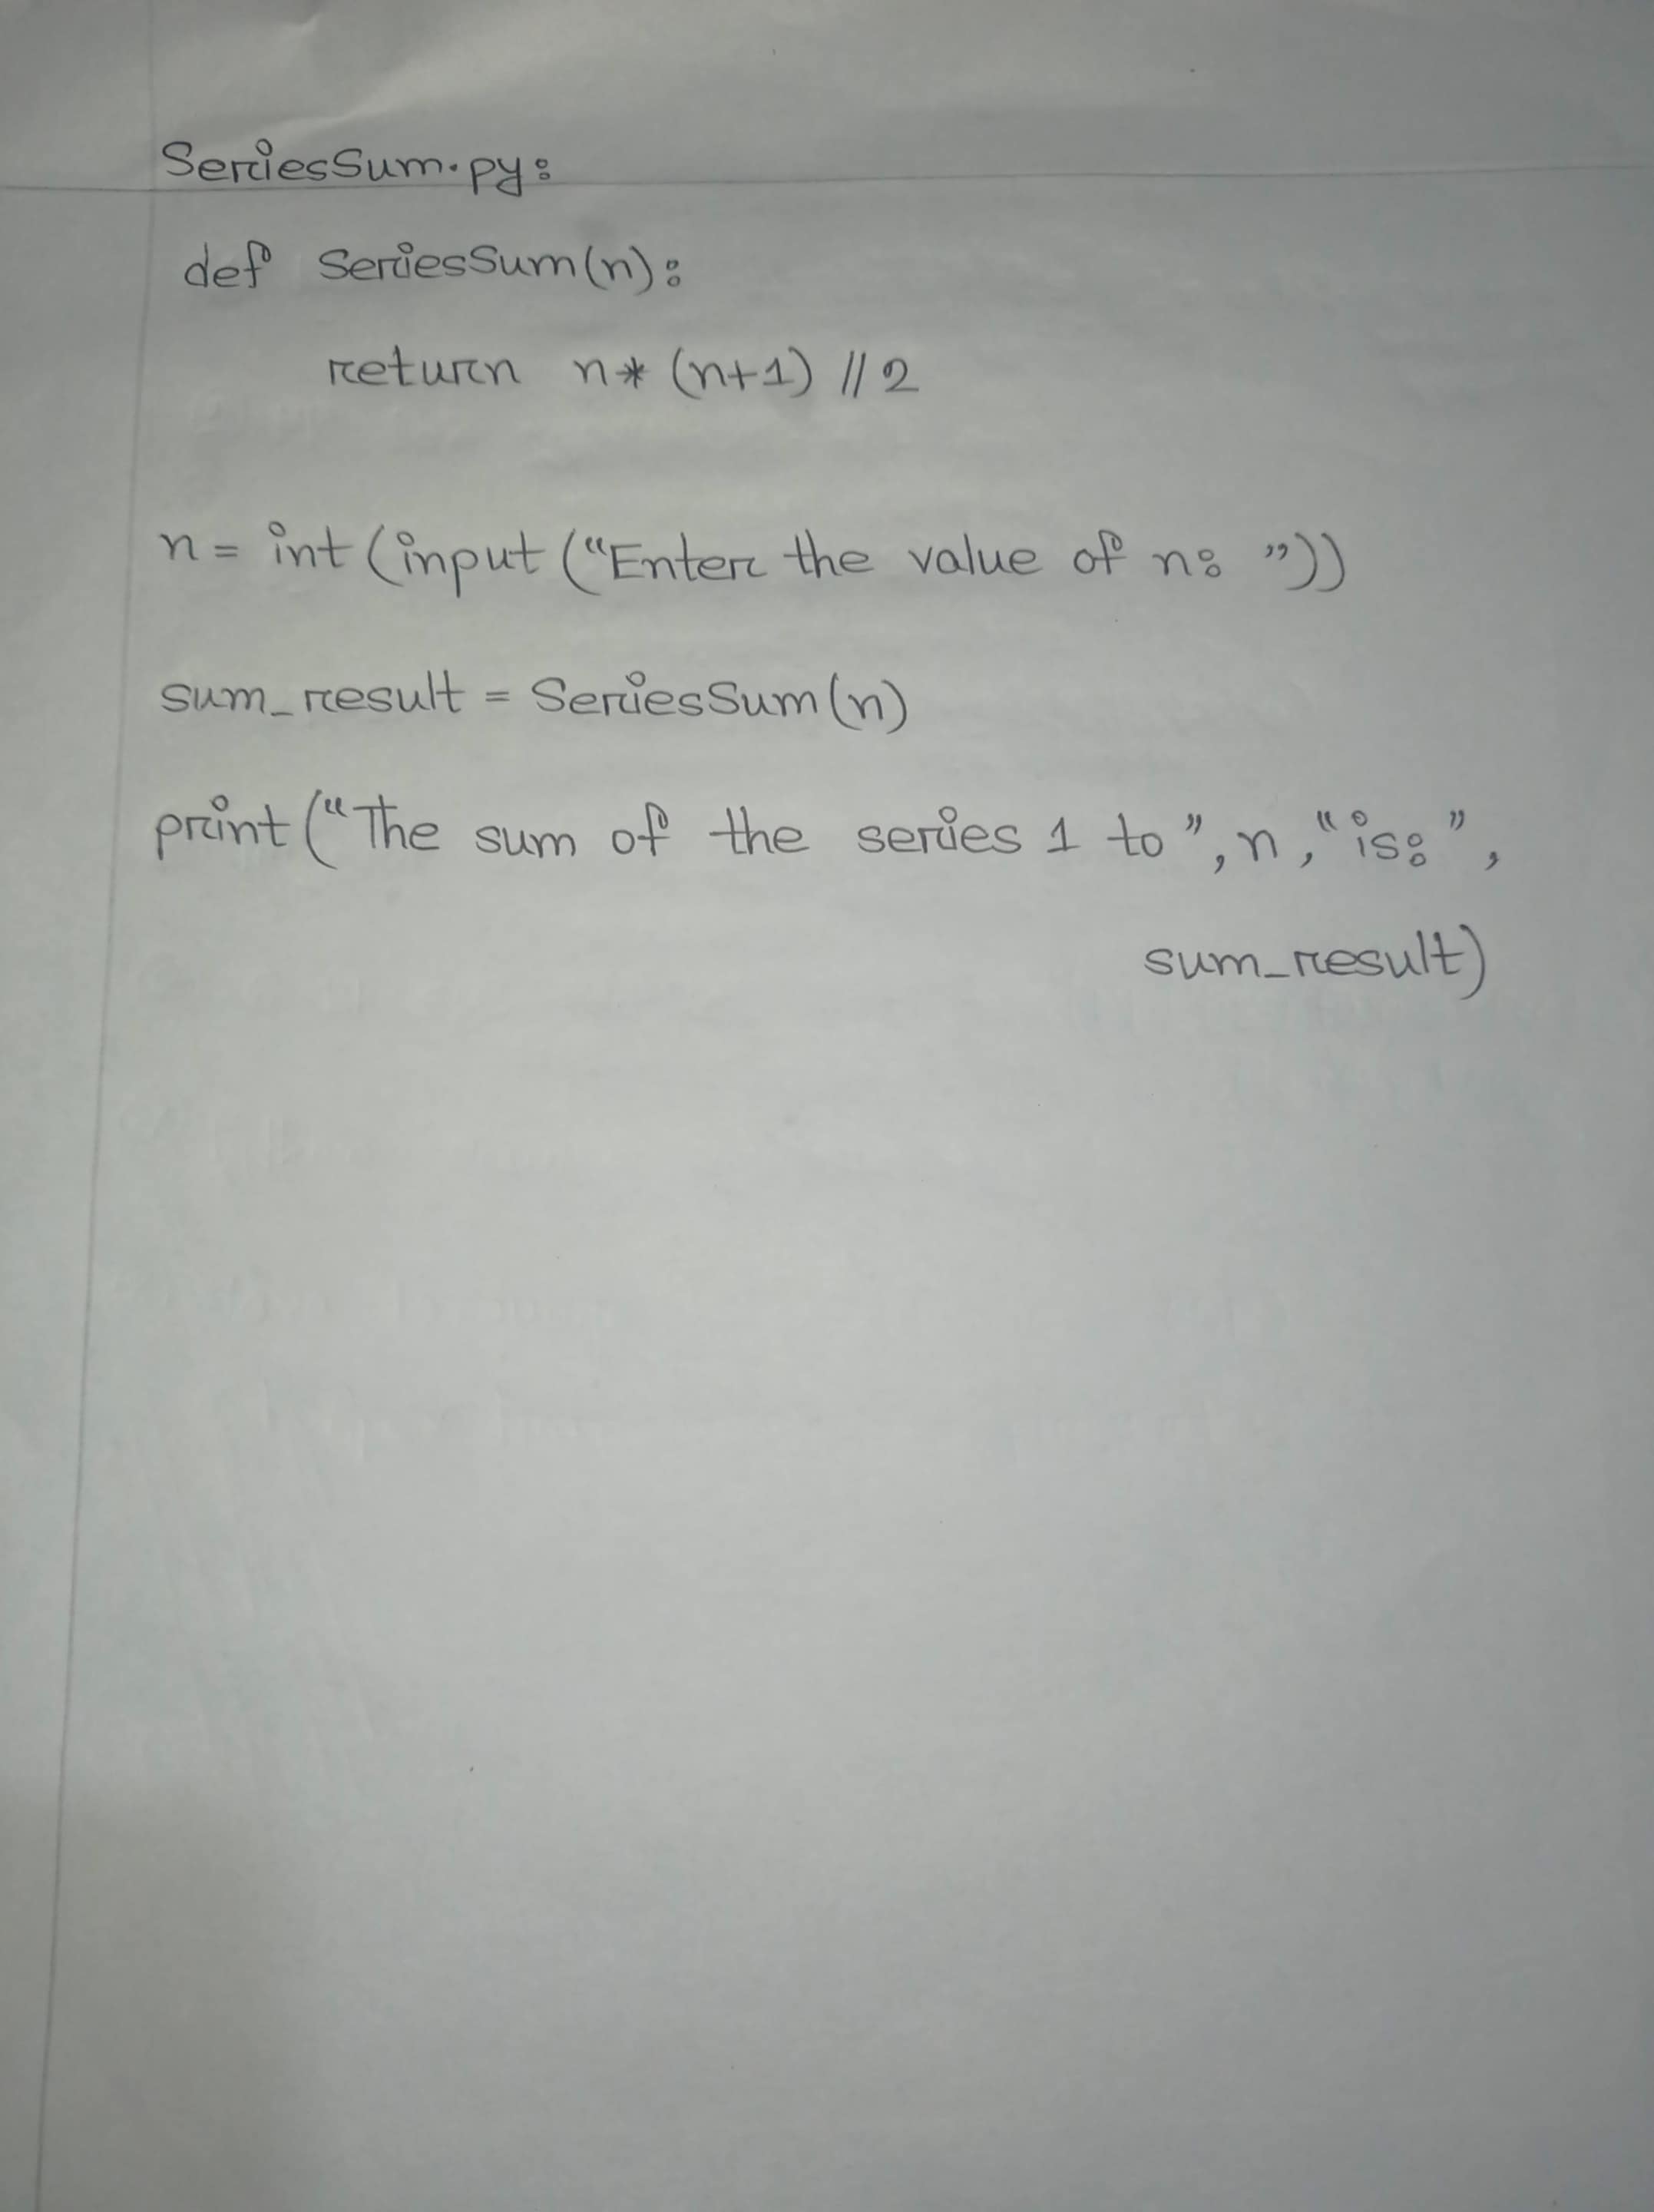 SeriesSum.py:
def SeriesSum(n):
return n* (n+1) //2
n= int (input (“Enter the value of n: ”))
sum_result = SeriesSum(n)
print (“The sum of the series 1 to ”, n, “is: ”,
sum_result)